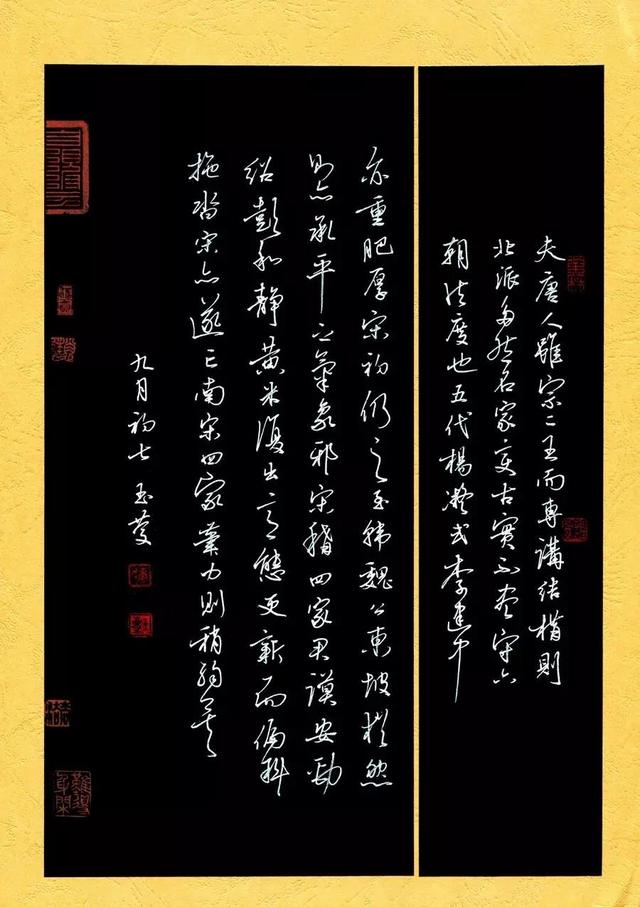 夫唐人雖宗二王而專講結構則
北派多然名家変古實不盡守六
朝法度也五代楊凝式李建中
亦重肥厚宋初仍之至韩魏公東坡猶然
則亦承平之氣象邪宋稱四家君谟安勁
紹彭和靜黃米復出意態更新而偏斜
拖沓宋亦遂亡南宋四家力則稍矣
九月初七玉